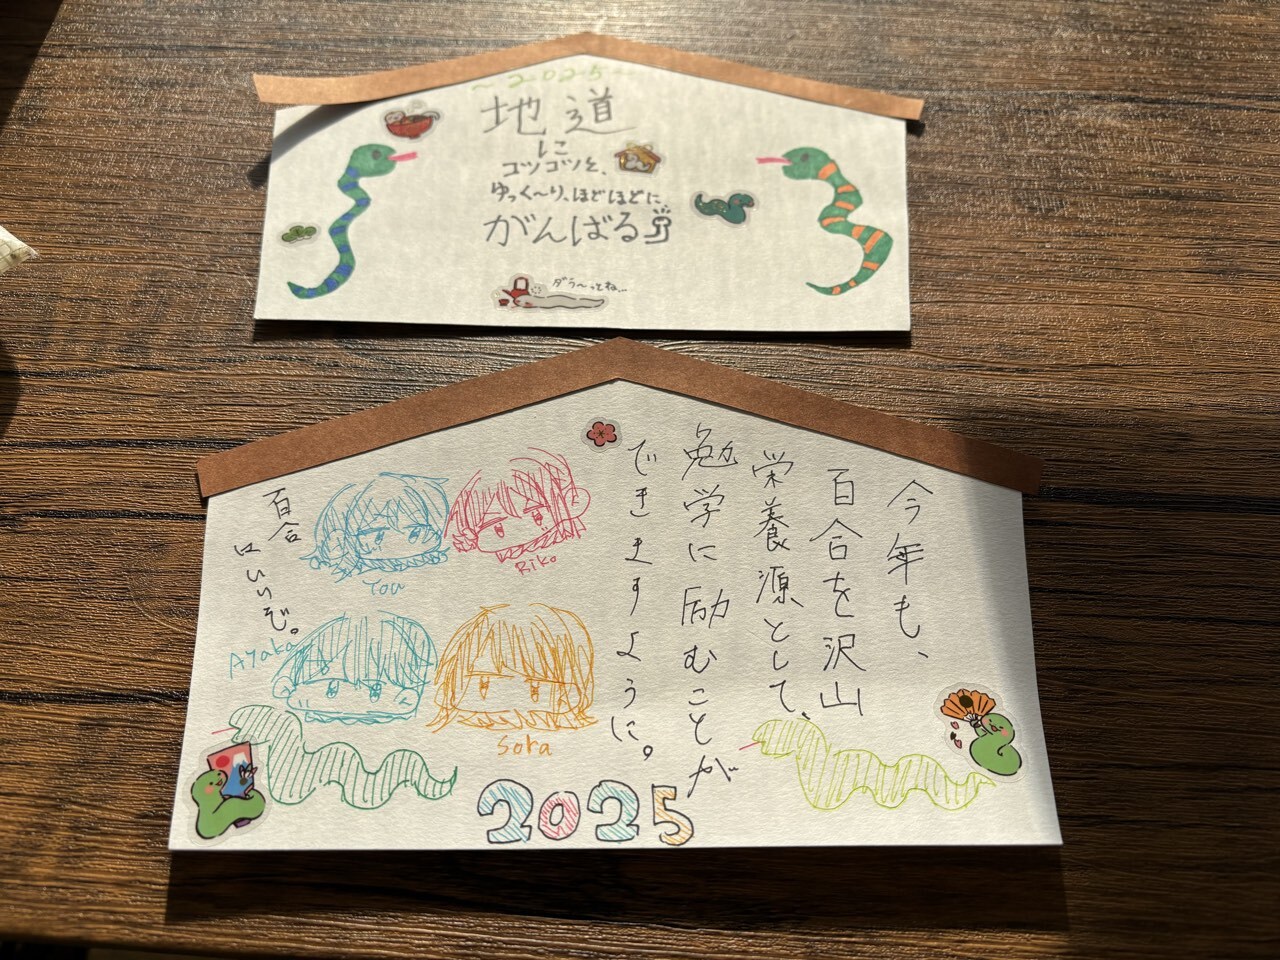 2025
地道
に
コツコツと、
ゆっく〜り、ほどほどに、
がんばる
ダラ〜ってね…
今年も、
百合を沢山
栄養源として、
勉学に励むことが
できますように。
Riko
You
百合
はいいぞ。
Ayaka
Sora
2025